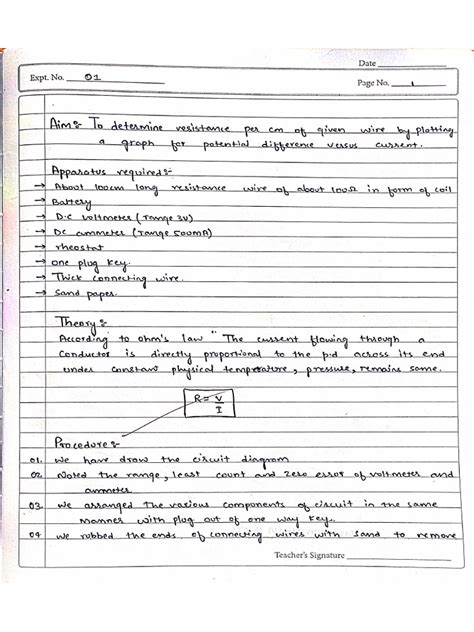 Date
Expt. No. 01
Page No. 1
Aim:- To determine resistance per cm of given wire by plotting
a graph for potential difference versus current.
Apparatus required:-
→ About 100cm long resistance wire of about 100Ω in form of coil
→ Battery
→ D.C voltmeter (range 3V)
→ DC ammeter (range 500mA)
→ rheostat
→ one plug key.
→ Thick connecting wire.
→ Sand paper.
Theory:-
According to ohm's law "The current flowing through a
Conductor is directly proportional to the p.d across its end
under constant physical temperature, pressure, remains same.
R = V/I
Procedure:-
01. We have draw the circuit diagram
02 Noted the range, least count and zero error of voltmeter and
ammeter
03 We arranged the various components of circuit in the same
manner with plug out of one way key.
04 we rubbed the ends of connecting wires with sand to remove
Teacher's Signature